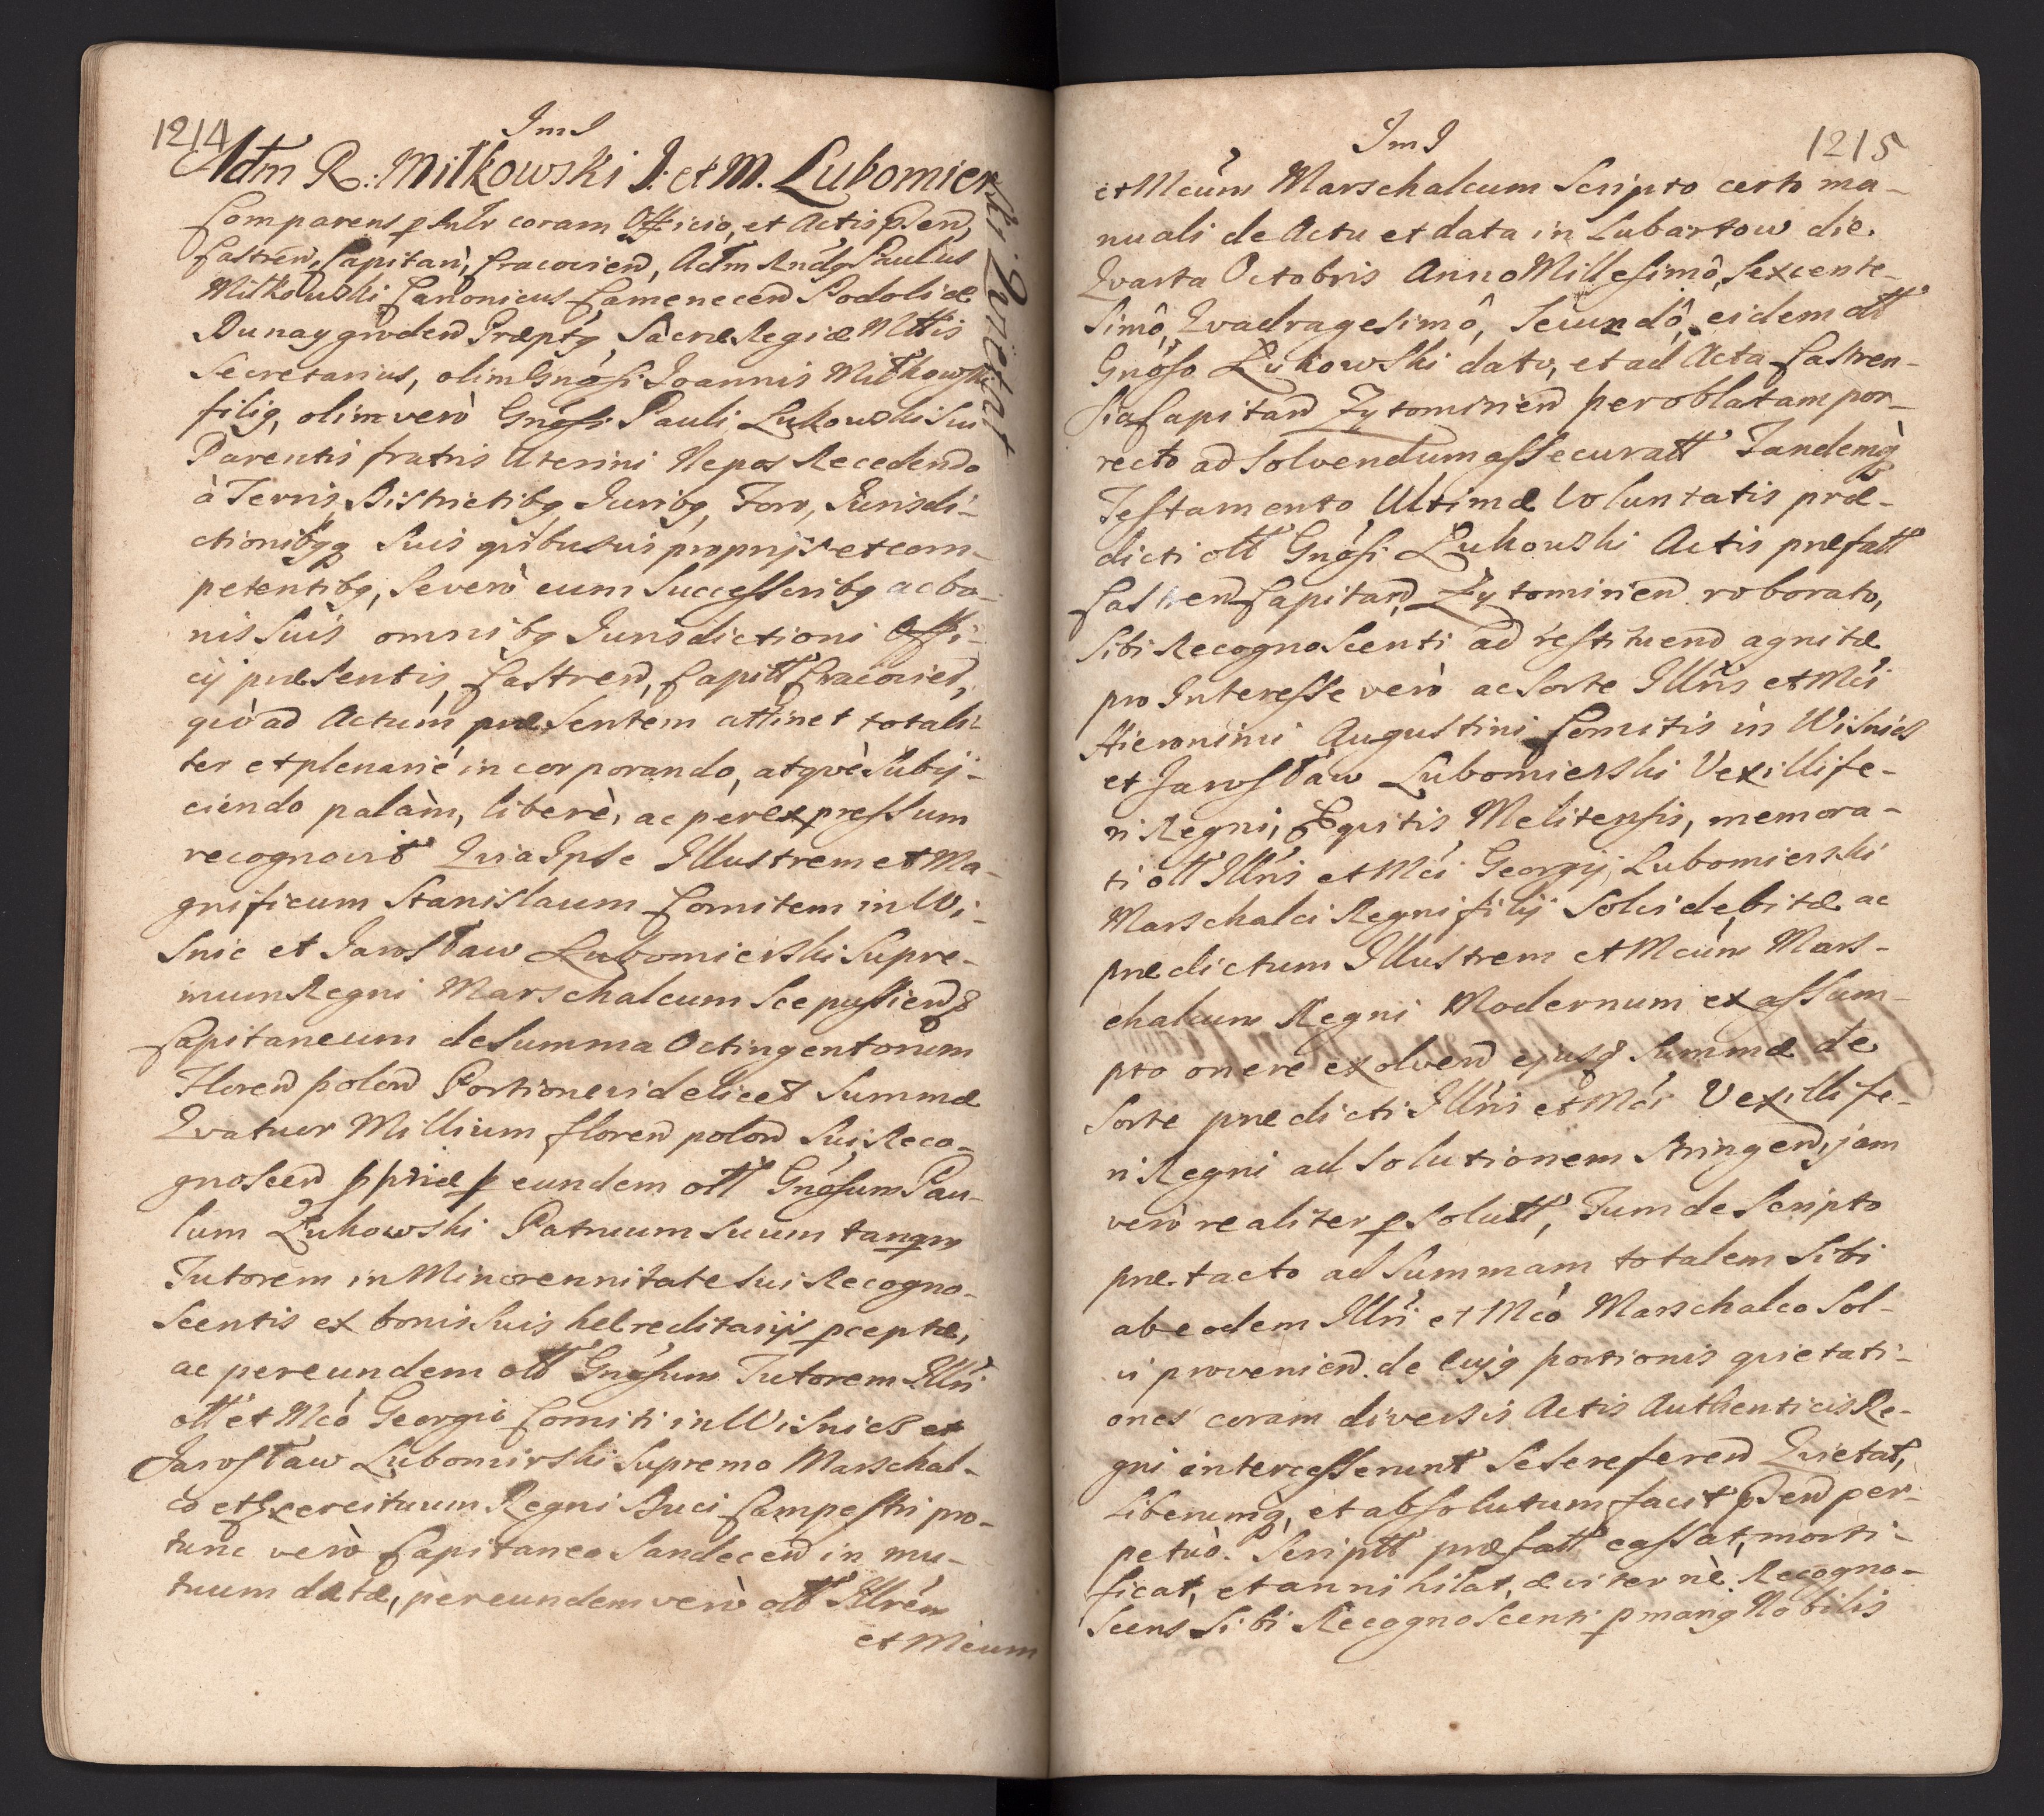 1214
ImI
Adm R: Miłkowski I: et M. Lubomierski Quietat
Comparens psnlr coram Officio, et Actis psen,
Castren, Capitan, Cracovien, Adm Rndg Paulus
Miłkowski Canonicus Camenecen Podoliæ
Dunaygroden Præptg, Sacræ Regiæ Mttis
Secretarius, olim Gnósi Joannis Miłkowski
filig, olim verò Gnósi Pauli Łukowski Sui
Parentis fratris Uterini Nepos Recedendo
à Terris, Districtibg, Juribg, Foro, Jurisdi-
ctionibgq Suis qribusuis proprijs et com-
petentibg, Se verò cum Successoribg ac bo-
nis Suis omnibg Jurisdictioni Offi-
cij præsentis, Castren, Capitt Cracovien,
qvò ad Actum præsentem attinet totali-
ter et plenariè incorporando, atqvè Subij-
ciendo palàm, liberè, ac pèr expressum
recognovit Qvia Ipse Illustrem et Ma-
gnificum Stanislaum Comitem in Wi-
snic et Jarosław Lubomierski Supre-
mum Regni Marschalcum Scepussien &
Capitaneum de Summa Octingentorum
Floren polon Portione videlicet Summæ
Qvatuor Millium floren polon Sui Reco-
gnoscen ppriæ p eundem olt Gnósum Pau-
lum Łukowski Patruum Suum tanqm
Tutorem in Minorennitate Sui Recogno-
scentis ex bonis Suis hæreditarijs pceptæ,
ac per eundem olt Gnósum Tutorem Illri
olt et Mcó Georgio Comiti in Wisnicz et
Jarosław Lubomirski Supremo Marschal-
co et Exercituum Regni Duci Campestri pro-
tunc verò Capitaneo Sandecen in mu-
tuum datæ, per eundem verò olt Illrem
et Mcum
1215
ImI
et Mcúm Marschalcum Scripto certo ma-
nuali de Actu et data in Lubartow die
Qvarta Octobris Anno Millesimô, Sexcente-
simô, Qvadragesimô, Secundô, eidem olt
Gnóso Łukowski dato, et ad Acta Castren-
sia Capitan Zytomirien per oblatam por-
recto ad Solvendum assecuratt Tandemq
Testamento Ultimæ Voluntatis præ-
dicti olt Gnósi Łukowski Actis præfatt
Castren Capitan, Zytomirien roborato,
Sibi Recognoscenti ad restituend agnitæ
pro Interesse verò ac Sorte Illris et Mci
Hieronimi Augustini Comitis in Wisnicz
et Jarosław Lubomierski Vexillife-
ri Regni, Eqvitis Melitensis, memora-
ti olt Illris et Mci Georgij Lubomierski
Marschalci Regni filij Solvi debitæ ac
prædictum Illustrem et Mcúm Mars-
chalcum Regni Modernum ex assum-
pto onere exolvend ejusd Summæ de
Sorte prædicti Illris et Mci Vexillife-
ri Regni ad Solutionem Stringend, jam
verò realiter psolutt, Tum de Scripto
prætacto ad Summam totalem Sibi
ab eodem Illri et Mcó Marschalco Sol-
vi provenien. de cujg portionis qvietati-
ones coram diversis Actis Authenticis Re-
gni intercesserunt Se Se referend Qvietat,
Liberumq, et absolutum facit psen per-
petuò. Scriptt præfatt cassat, morti-
ficat, et annihilat, æviternè. Recogno-
scens Sibi Recognoscenti pmang Nobilis